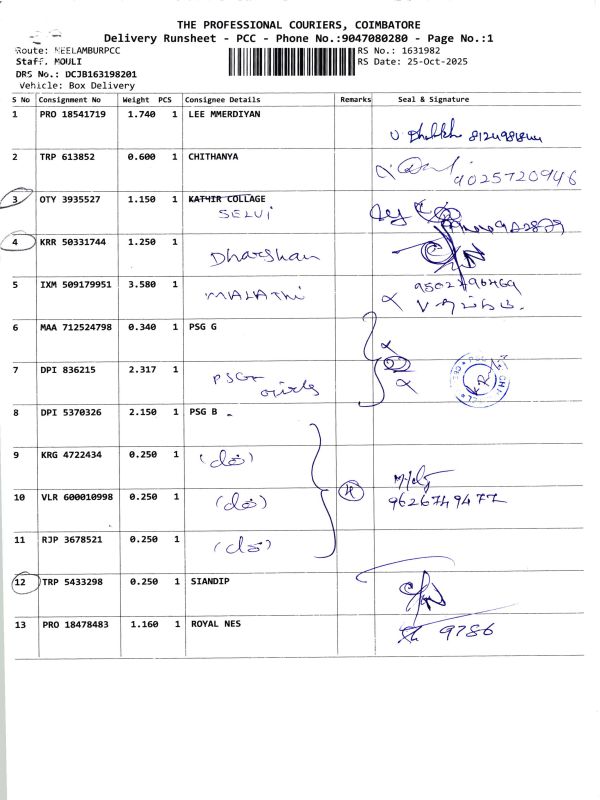 THE PROFESSIONAL COURIERS, COIMBATORE
Delivery Runsheet - PCC - Phone No.:9047080280 - Page No.:1
Route: NEELAMBURPCC
RS No.: 1631982
Staff. MOULI
RS Date: 25-Oct-2025
DRS No.: DCJB163198201
Vehicle: Box Delivery
S No Consignment No Weight PCS Consignee Details Remarks Seal & Signature
1 PRO 18541719 1.740 1 LEE MMERDIYAN
2 TRP 613852 0.600 1 CHITHANYA
9025720946
3 OTY 3935527 1.150 1 KATHIR COLLAGE
SELVI
4 KRR 50331744 1.250 1 Dharshan
5 IXM 509179951 3.580 1 MALATHI
6 MAA 712524798 0.340 1 PSG G
7 DPI 836215 2.317 1 PSG Girls
8 DPI 5370326 2.150 1 PSG B
9 KRG 4722434 0.250 1 (do)
10 VLR 600010998 0.250 1 (do) 4 9626749477
11 RJP 3678521 0.250 1 (do)
12 TRP 5433298 0.250 1 SIANDIP
13 PRO 18478483 1.160 1 ROYAL NES 9786